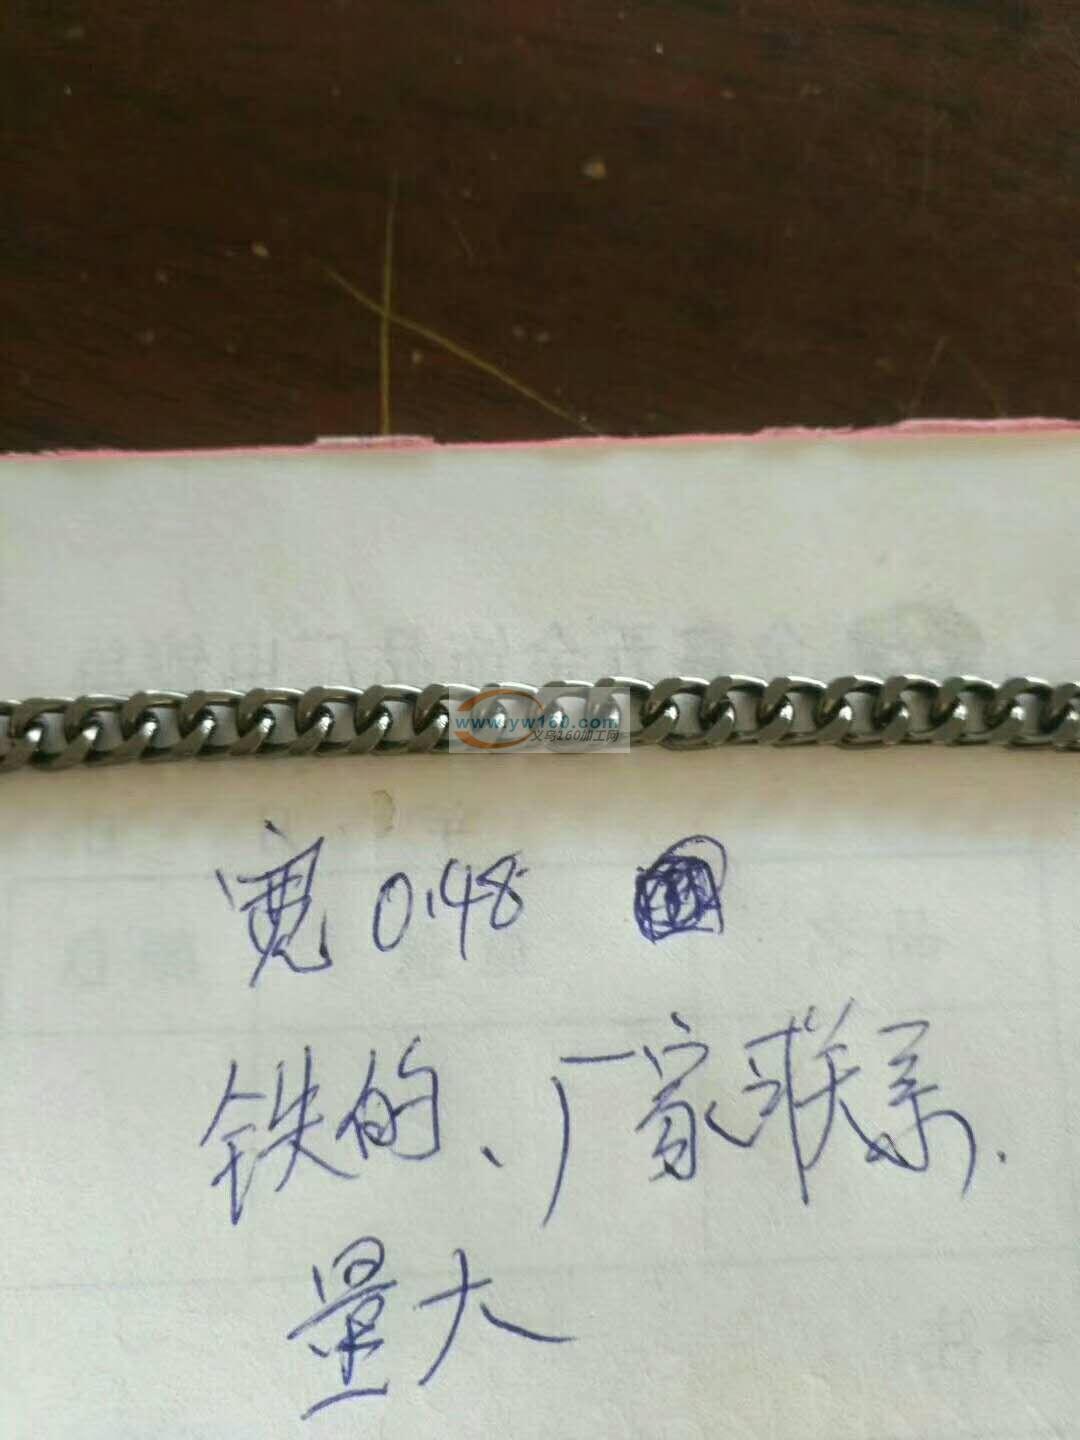 www.yw160.com
义乌160加工网
宽0.48
铁的、厂家联系.
量大